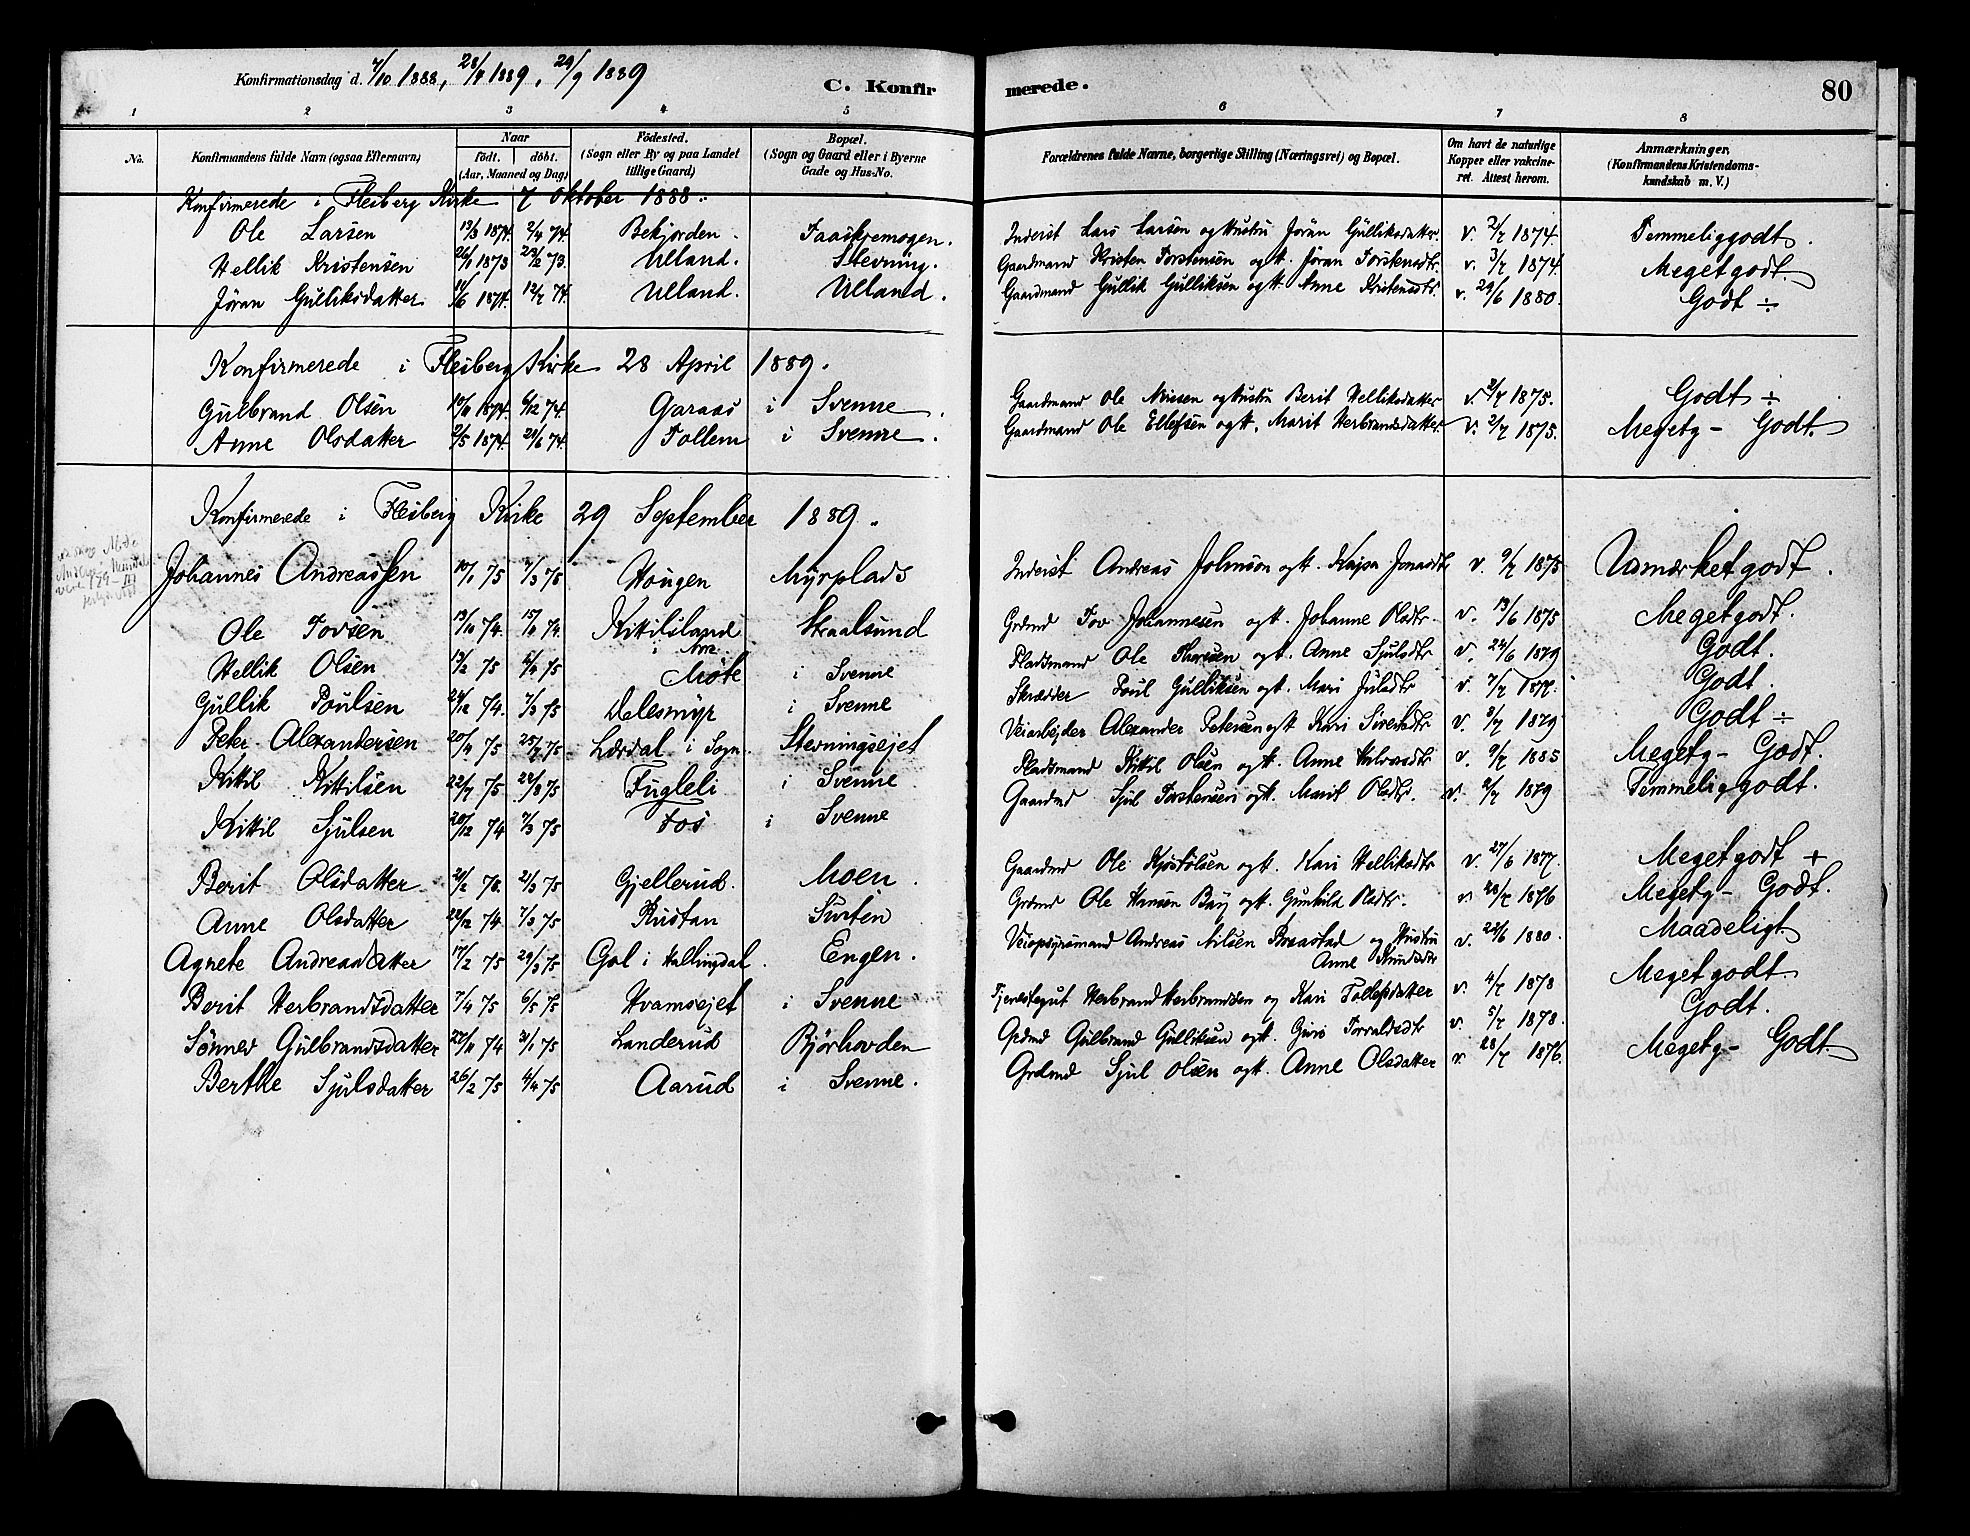 Konfirmationsdag d. 7/10 1888, 28/4 1889, 29/9 1889
C. Konfirmerede.
80
1 2 3 4 5 6 7 8
No. Konfirmandens fulde Navn (ogsaa Efternavn) Naar født. døbt. (Aar, Maaned og Dag) Fødested. (Sogn eller By og paa Landet tillige Gaard) Bopæl. (Sogn og Gaard eller i Byerne Gade og Hus-No. Forældrenes fulde Navne, borgerlige Stilling (Næringsvei) og Bopæl. Om havt de naturlige Kopper eller vakcineret. Attest herom. Anmærkninger, (Konfirmandens Kristendomskundskab m. V.)
Konfirmerede i Flesberg Kirke 7 Oktober 1888.
Ole Larsen 1874. 2/4 74. Bekjorden. Faaskjemogen. Inderst Lars Larsen og Hustru Jöran Gulliksdatter. v. 2/7 1874. Temmeliggodt.
Hellik Kristensen 26/1 1873 73. Ulland. Stevning. Gaardmand Kristen Torstensen og H. Jöran Torstensdtr. v. 3/7 1874. Megetgodt.
Jöran Gulliksdatter 1874. 12/7 74. Ulland. Ulland. Gaardmand Gullik Gulliksen og H. Anne Kristensdtr. v. 29/6 1880. Godt ÷
Konfirmerede i Flesberg Kirke 28 April 1889.
Gulbrand Olsen 10/11 1874. 6/12 74. Garaas i Svenne. Gaardmand Ole Nilsen og Hustru Berit Helliksdatter v. 2/7 1875. Godt ÷
Anne Olsdatter 2/5 1874. 21/6 74. Follem i Svenne. Gaardmand Ole Ellefsen og H. Marit Herbrandsdatter. v. 2/7 1875. Megetg- Godt.
Konfirmerede i Flesberg Kirke 29 September 1889.
Johannes Andreassen 10/1 75 7/3 75 Haugen Myrplads Inderst Andreas Johnson og H. Kajsa Jonasdtr v. 9/7 1875 Udmærketgodt.
Ole Tovsen 13/10 74. 15/11 74. Kittilsland Skraalsund Grdmd Tov Johannesen og H. Johanne Olsdtr. v. 13/6 1875 Megetgodt.
Hellik Olsen 13/2 75 75 Möte i Svenne Pladsmand Ole og H. Anne Sjulsdtr v. 24/6 1879 Godt.
Gullik Poulsen 24/12 74. 7/3 75 Dalesmyr i Svenne Skrædder Poul Gulliksen og H. Mari Julsdtr v. 7/7 1877. Godt.
Peter Alexandersen 20/4 75 25/7 75 Lærdal i Sogn. Stevningsejet Veiarbejder Alexander Petersen og H. Kari Siversdtr v. 3/7 1879 Godt ÷
Kittil Kittilsen 22/7 75 29/8 75 Fugleli i Svenne Pladsmand Kittil Olsen og H. Anne Halvorsdtr v. 9/7 1885 Megetg- Godt.
Kittil Sjulsen 20/12 74 7/3 75 Fos i Svenne Gaardmd Sjul Torstensen og H. Marit Olsdtr. v. 2/7 1879 Temmeliggodt.
Berit Olsdatter 2/3 75 Gjellerud. Moen. Gaardmd Ole Kjöstolsen og H. Kari Helliksdtr v. 27/6 1877. Megetgodt +
Anne Olsdatter 22/12 74 7/3 75 Rustan Surten Grdmd Ole Hansen Bay og H. Gunhild Olsdtr. v. 28/7 1876 Megetg- Godt.
Agnete Andreasdatter 17/2 75 29/3 75 Gol i Hallingdal. Engen. Veiopsynsmand Andreas Nilsen Braastad og Hustru Anne Knudsdtr v. 22/6 1880. Maadeligt
Berit Herbrandsdatter 7/4 75 6/5 75 Hvamsejet i Svenne Tjenestegut Herbrand Herbrandsen og Kari Tollefsdatter v. 4/7 1878 Megetgodt
Sönnev Gulbrandsdatter 22/11 74 31/1 75 Landerud Bjørhovden Grdmd Gulbrand Gulliksen og H. Guri Torvaldsdtr v. 5/7 1878. Godt.
Berthe Sjulsdatter 26/2 75 4/4 75 Aarud i Svenne. Grdmd Sjul Olsen og H. Anne Olsdatter v. 28/7 1876. Megetg- Godt.